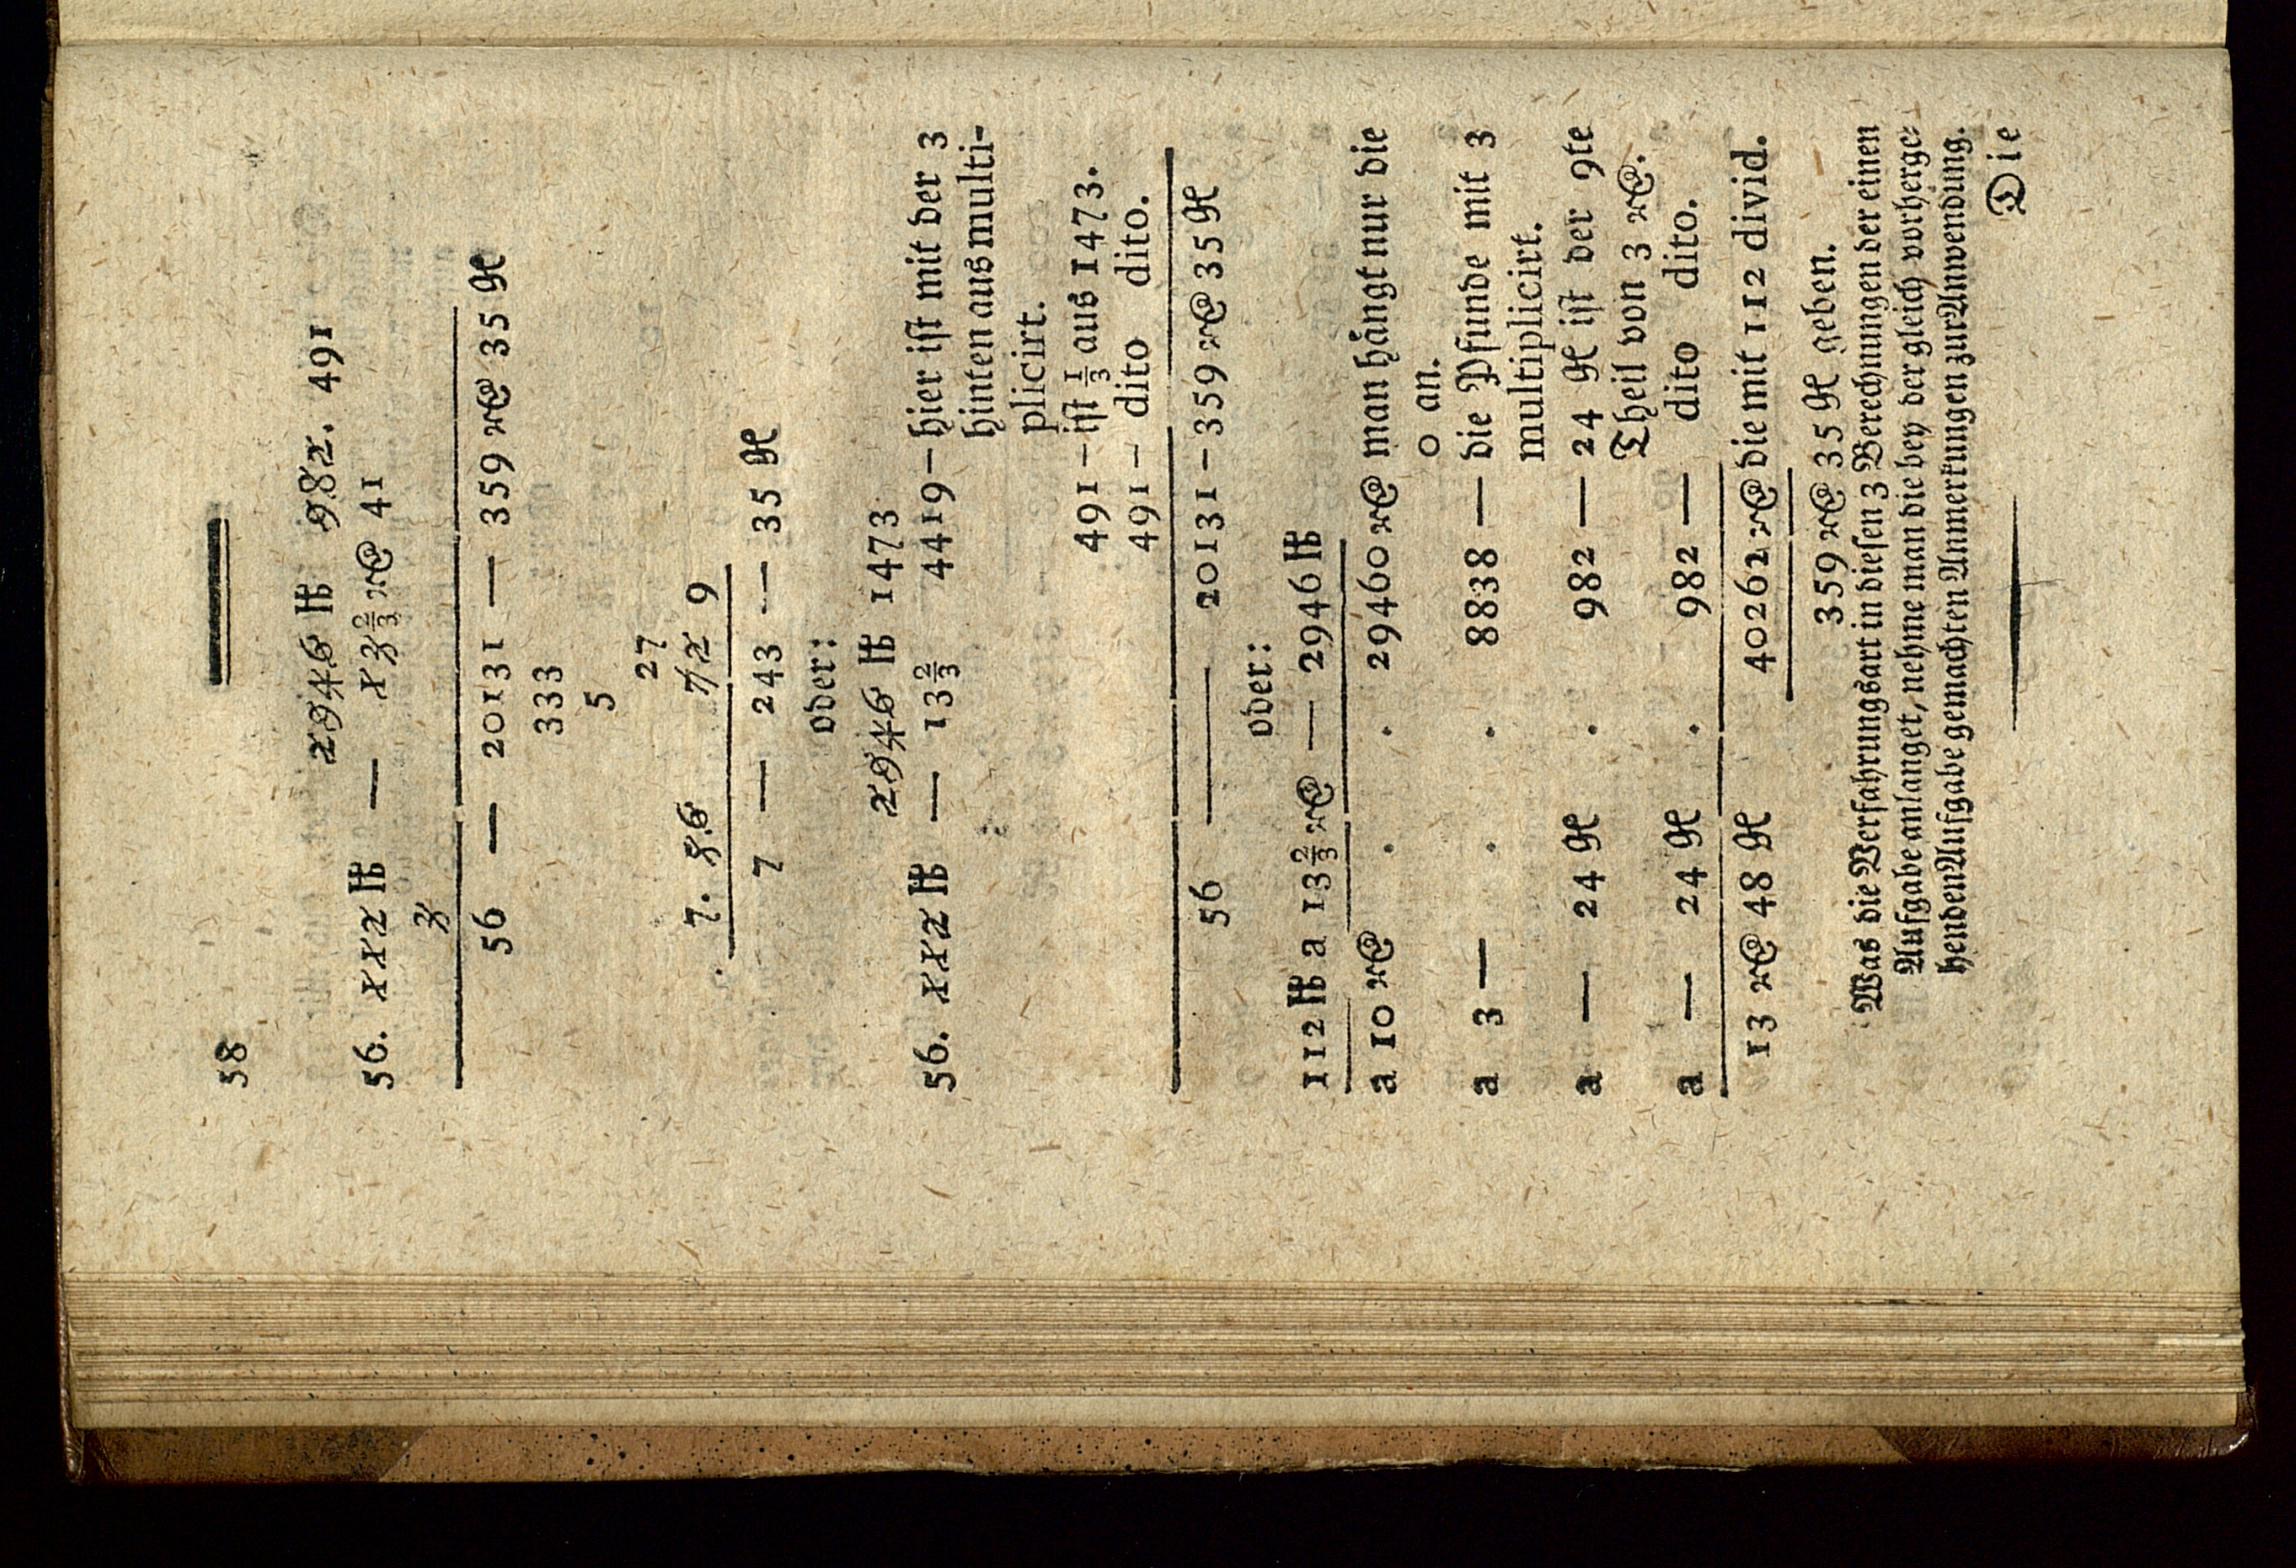 58
2946 ℔ 982. 491
56. 112 ℔ — 13⅔ rthlr 41
3
56 — 20131 — 359 rthlr 35 gl
333
5
27
7. 56 72 9
7 — 243 — 35 gl
oder:
2946 ℔ 1473
56. 112 ℔ — 13⅔ 4419 — hier iſt mit der 3
hinten aus multi-
plicirt.
491 — iſt ⅓ aus 1473.
491 — dito dito.
56 — 20131 — 359 rthlr 35 gl
oder:
112 ℔ a 13⅔ rthlr — 2946 ℔
a 10 rthlr . . 29460 rthlr man hängt nur die
0 an.
a 3 — . . 8838 — die Pfunde mit 3
multiplicirt.
a — 24 gl . 982 — 24 gl iſt der 9te
Theil von 3 rthlr.
a — 24 gl . 982 — dito dito.
13 rthlr 48 gl 40262 rthlr die mit 112 divid.
359 rthlr 35 gl geben.
Was die Verfahrungsart in dieſen 3 Berechnungen der einen
Aufgabe anlanget, nehme man die bey der gleich vorherge-
henden Aufgabe gemachten Anmerkungen zur Anwendung.
Die